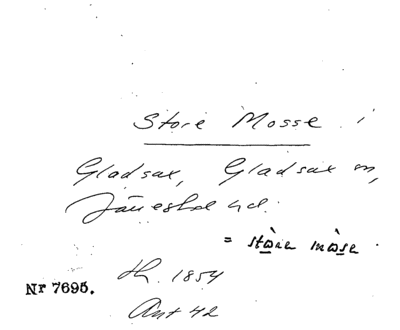 Store Mosse i
Gladsax, Gladsax sn,
Järrestad hd.
= stòre mòse.
Nr 7695.
th. 1854
Ant 42